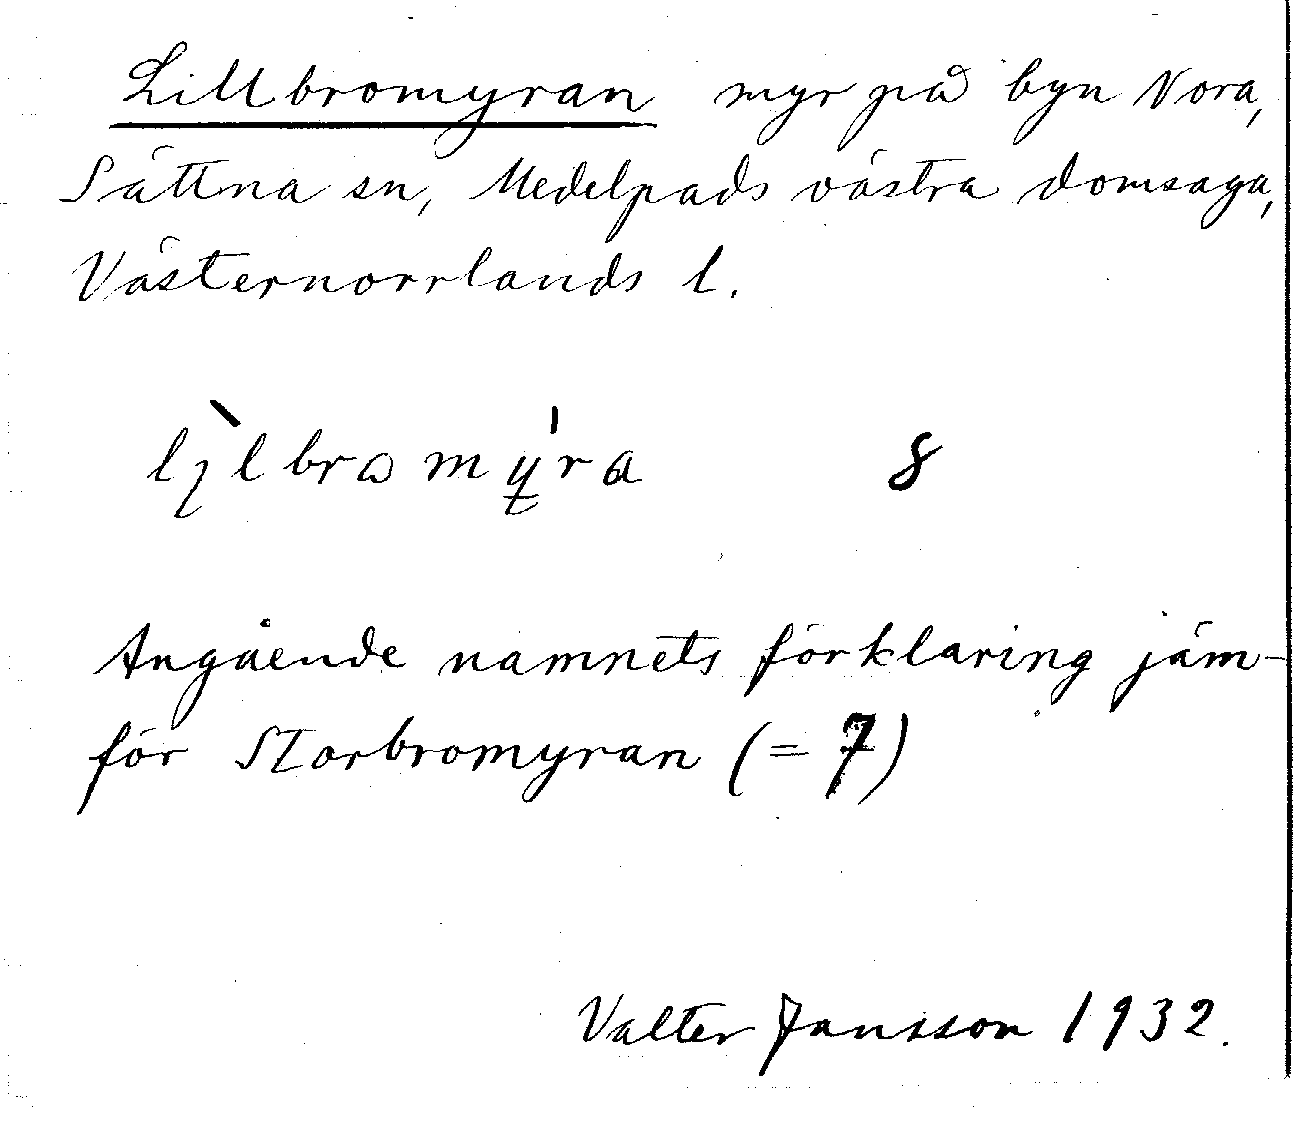 Lillbromyran myr på byn Nora,
Sättna sn, Medelpads västra domsaga,
Västernorrlands l.
lìlbramý̱ra 8
Angående namnets förklaring jäm-
för Storbromyran (= 7)
Valter Jansson 1932.